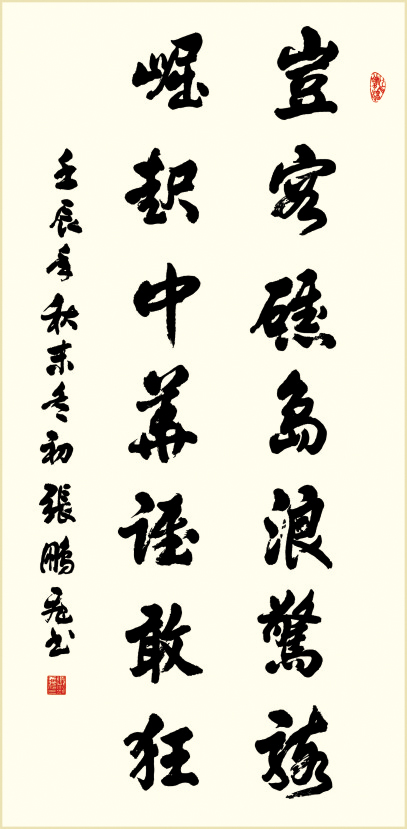 豈容礁島浪驚駭
崛起中華誰敢狂
壬辰年秋末冬初張鵬書